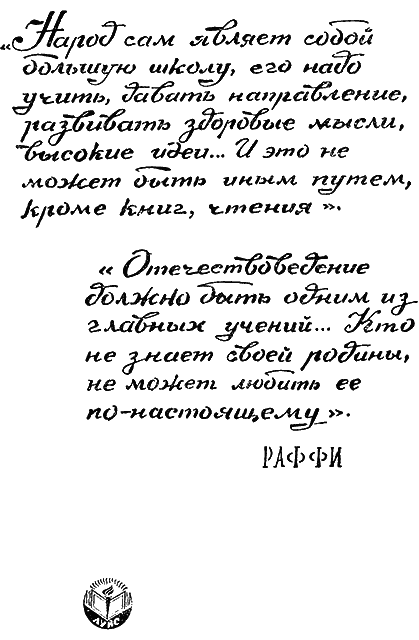 «Народ сам являет собой
большую школу, его надо
учить, давать направление,
развивать здоровые мысли,
высокие идеи... И это не
может быть иным путем,
кроме книг, чтения».
«Отечествоведение
должно быть одним из
главных учений... Кто
не знает своей родины,
не может любить ее
по-настоящему».
РАФФИ
ЛУЙС